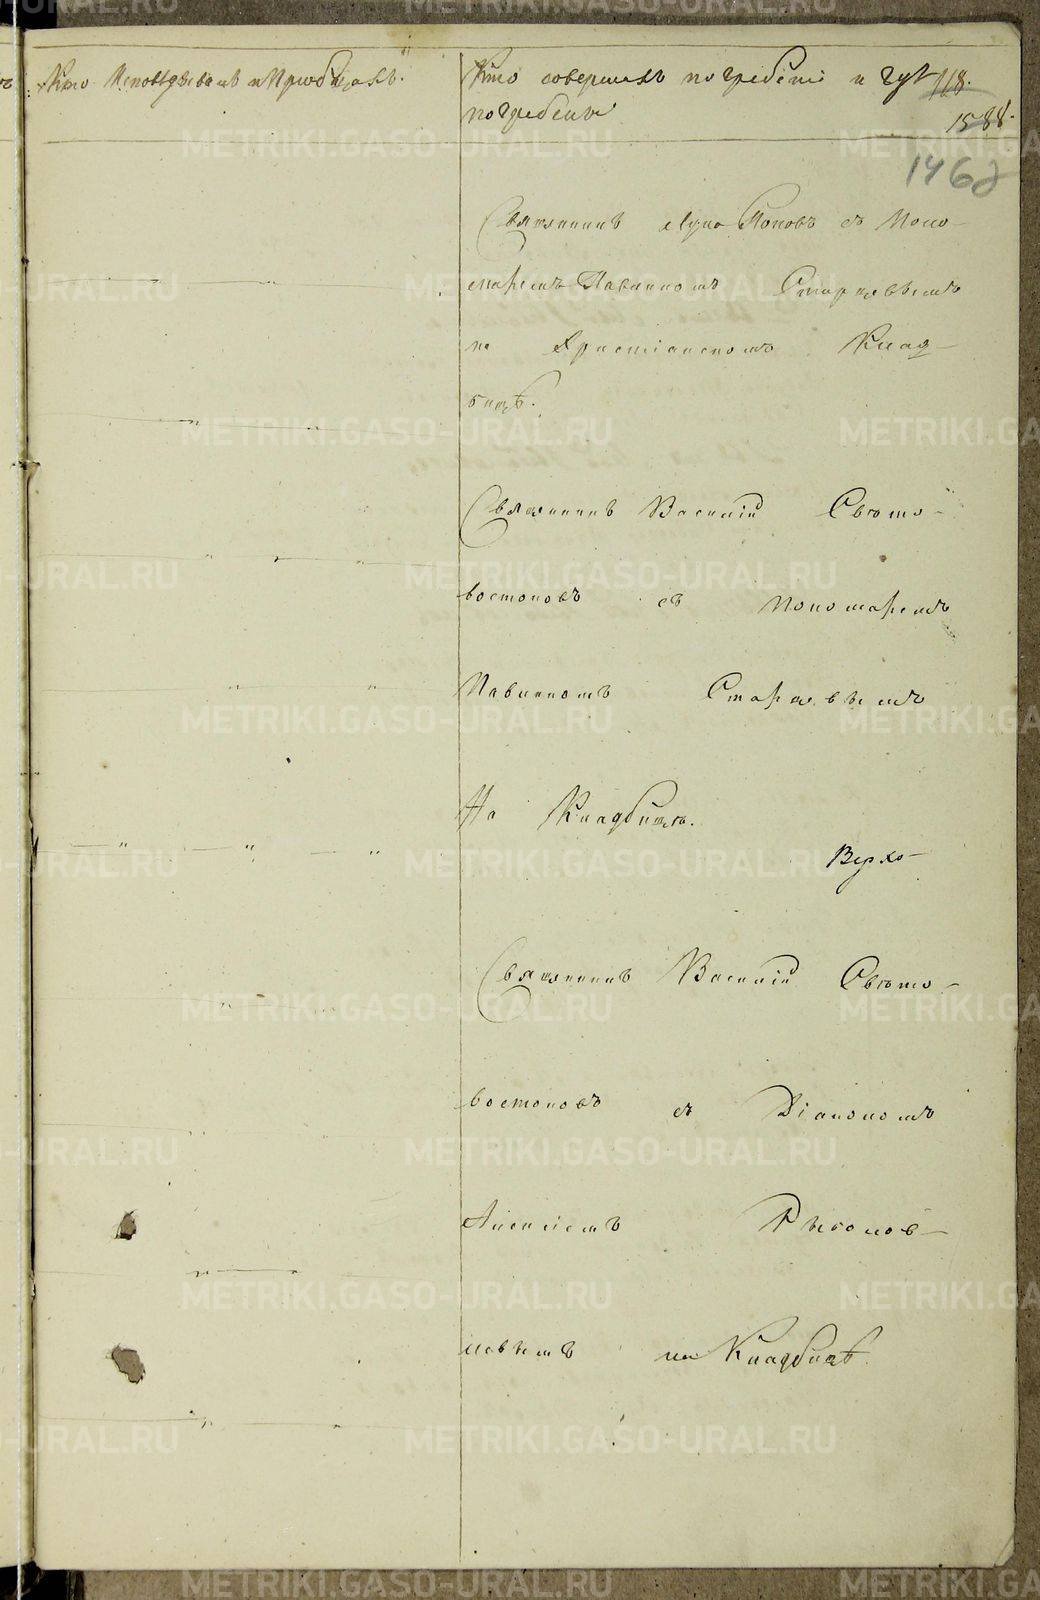 Кто Исповѣдывалъ и Пріобщалъ.
Кто совершалъ погребеніе и гдѣ
погребены
118.
1588.
146
Священникъ Лука Поповъ съ Поно-
маремъ Павлиномъ
на Христіанскомъ Клад-
бищѣ.
Священникъ Василій Свѣто-
востоковъ съ Пономаремъ
Павлиномъ
На Кладбищѣ.
Верхо-
Священникъ Василій Свѣто-
востоковъ съ Діакономъ
Алексіемъ
на Кладбищѣ.
METRIKI.GASO-URAL.RU